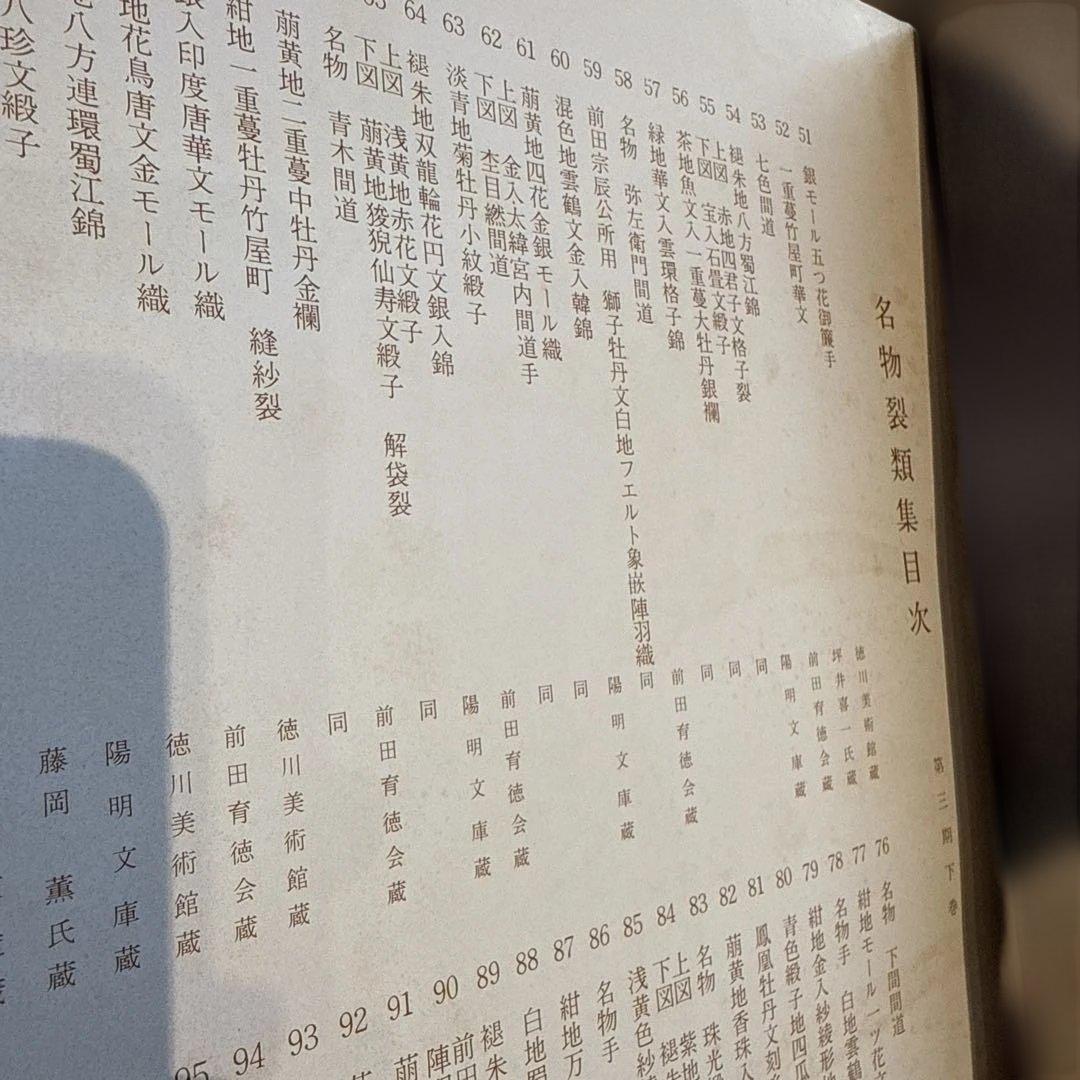 名物裂類集目次
第三期下巻
51 銀モール五つ花御簾手 徳川美術館蔵
52 一重蔓竹屋町華文 坪井喜一氏蔵
53 七色間道 前田育徳会蔵
54 褪朱地八方蜀江錦 陽明文庫蔵
55 上図 赤地四君子文格子裂 同
下図 宝入石畳文緞子
56 茶地魚文入一重蔓大牡丹銀襴 同
57 緑地華文入雲環格子錦 同
58 名物 弥左衛門間道 前田育徳会蔵
59 前田宗辰公所用 獅子牡丹文白地フエルト象嵌陣羽織 同
60 混色地雲鶴文金入韓錦 陽明文庫蔵
61 萠黄地四花金銀モール織 同
62 上図 金入太緯宮内間道手 同
下図 杢目繎間道
63 淡青地菊牡丹小紋緞子 前田育徳会蔵
64 褪朱地双龍輪花円文銀入錦 陽明文庫蔵
上図 浅黄地赤花文緞子 同
下図 萠黄地狻猊仙寿文緞子 解袋裂
名物 青木間道 前田育徳会蔵
萠黄地二重蔓中牡丹金襴 同
紺地一重蔓牡丹竹屋町 縫紗裂 徳川美術館蔵
入印度唐華文モール織 前田育徳会蔵
地花鳥唐文金モール織 徳川美術館蔵
八方連環蜀江錦 陽明文庫蔵
八珍文緞子 藤岡 薫氏蔵
76 名物 下間間道
77 紺地モール一ツ花
78 名物手 白地雲鶴
79 紺地金入紗綾形
80 青色緞子地四瓜
81 鳳凰牡丹文刻
82 萠黄地香珠入
83 名物 珠光
84 上図 紫地
下図 褪朱
85 浅黄色紗
86 名物手
87 紺地万
88 白地蜀
89 褪朱
90 前田
陣
91 萠
92
93
94
95